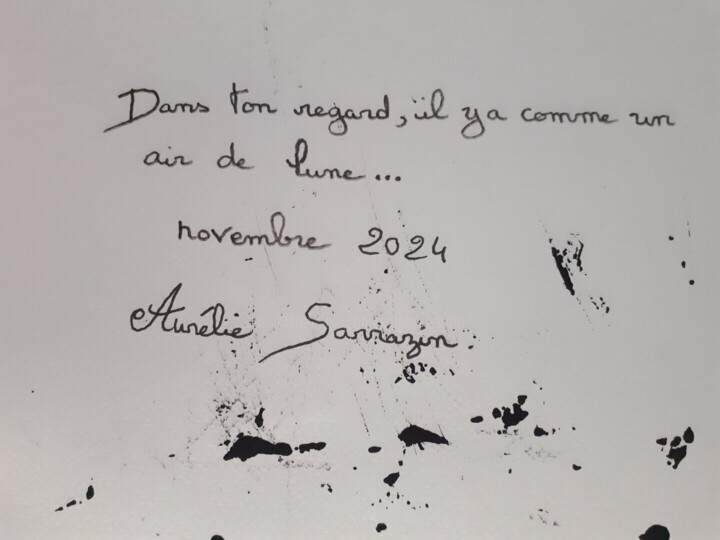 Dans ton regard, il y a comme un
air de lune...
novembre 2024
Aurélie Sarrazin.